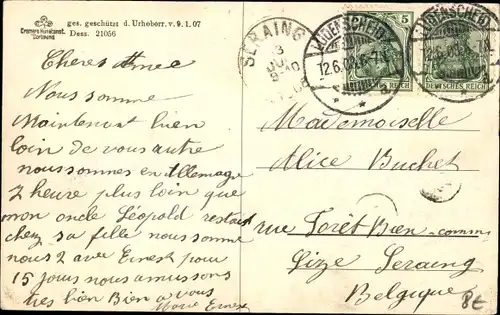 Cramers Kunstanst. Dortmund
ges. geschützt d. Urheberr. v. 9.1.07
Dess. 21056
SERAING
LÜDENSCHEID
12.6.08.6-7N.
5
DEUTSCHES REICH
LÜDENSCHEID
DEUTSCHES REICH
Cheres Amee
Nous somme
Maintenant bien
loin de vous autre
nous sommes en Allemage
2 heure plus loin que
mon oncle Léopold restait
chez sa fille nous somme
nous 2 avec Ernest pour
15 jours nous amusons
tres bien Bien a vous
Marie Ernest
Mademoiselle
Alice Buchet
rue Forêt Bien
Lize Seraing
Belgique
8€